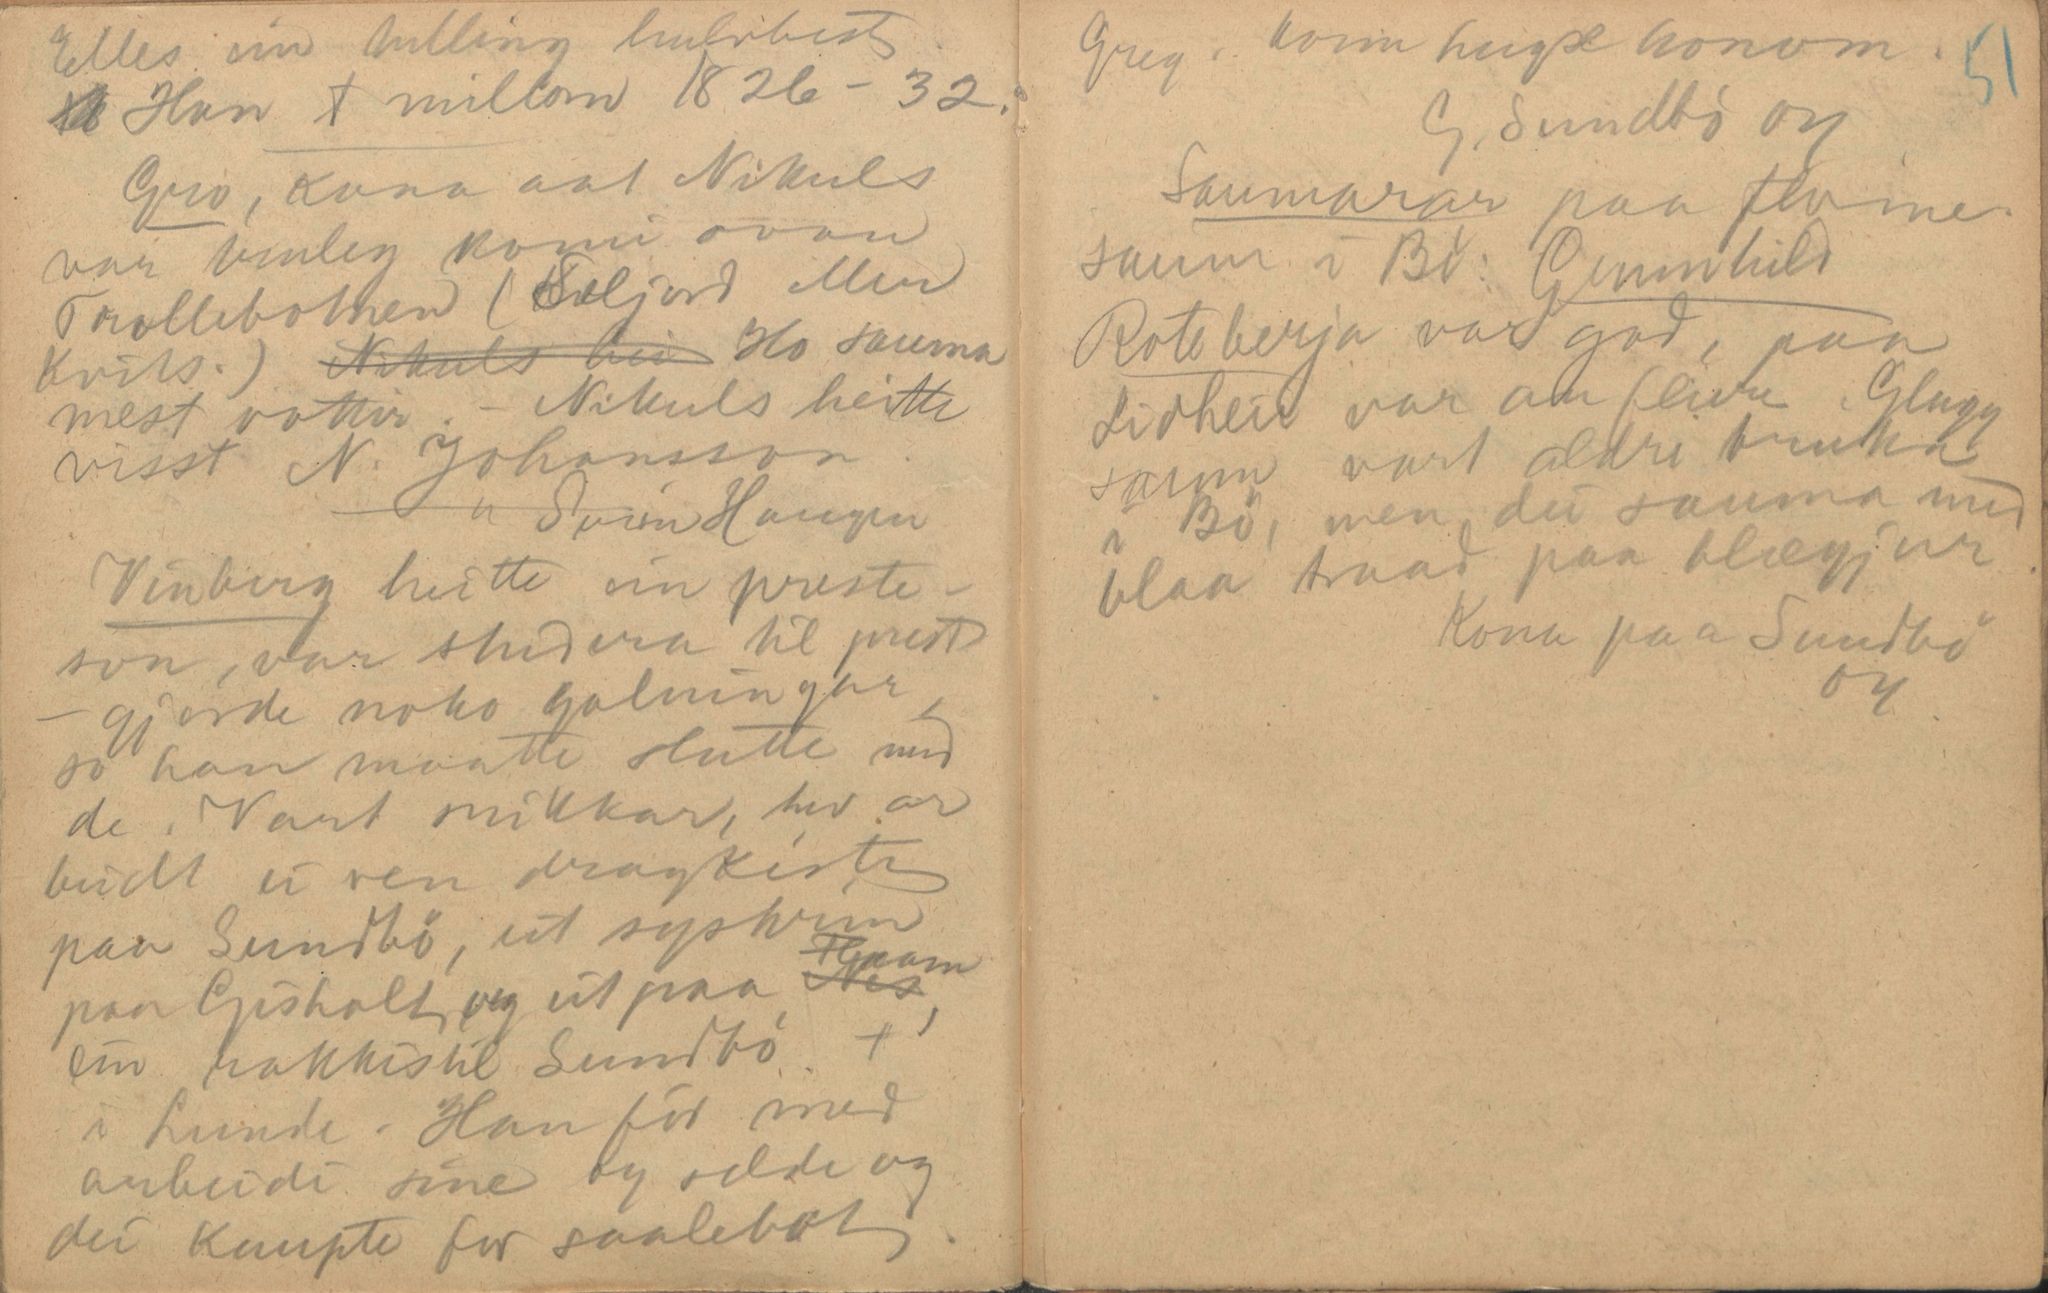 Elles ein tulling
Han † millom 1826-32.
Gro, kona aat Nikuls
var truleg komi ovan
Trollebotnen (Seljord eller
Kvits.) Nikuls hei Ho sauma
mest vottir. - Nikuls heitte
visst N. Johansson.
Svein Haugen
Vinberg heitte ein preste-
son, var studera til prest
- gjorde noko galningar,
so han maatte slutte med
de. Vart snikkar, hev ar
beidt ei ven dragkiste
paa Sundbö, eit syskrin
paa Gisholt, og eit paa Nes Flaam,
ein rokk til Sundbö. †
i Lunde. Han för med
arbeidi sine og selde og
dei kaupte for saalebot.
Greg. konn hugse honom.
51
G. Sundbö og
Saumarar paa
saum i Bö: Gunnhild
Roteberja var god, paa
Lidheie var au fleire. Glagg
saum vart aldri bruka
i Bö, men dei sauma med
blaa traad paa
Kona paa Sundbö
og